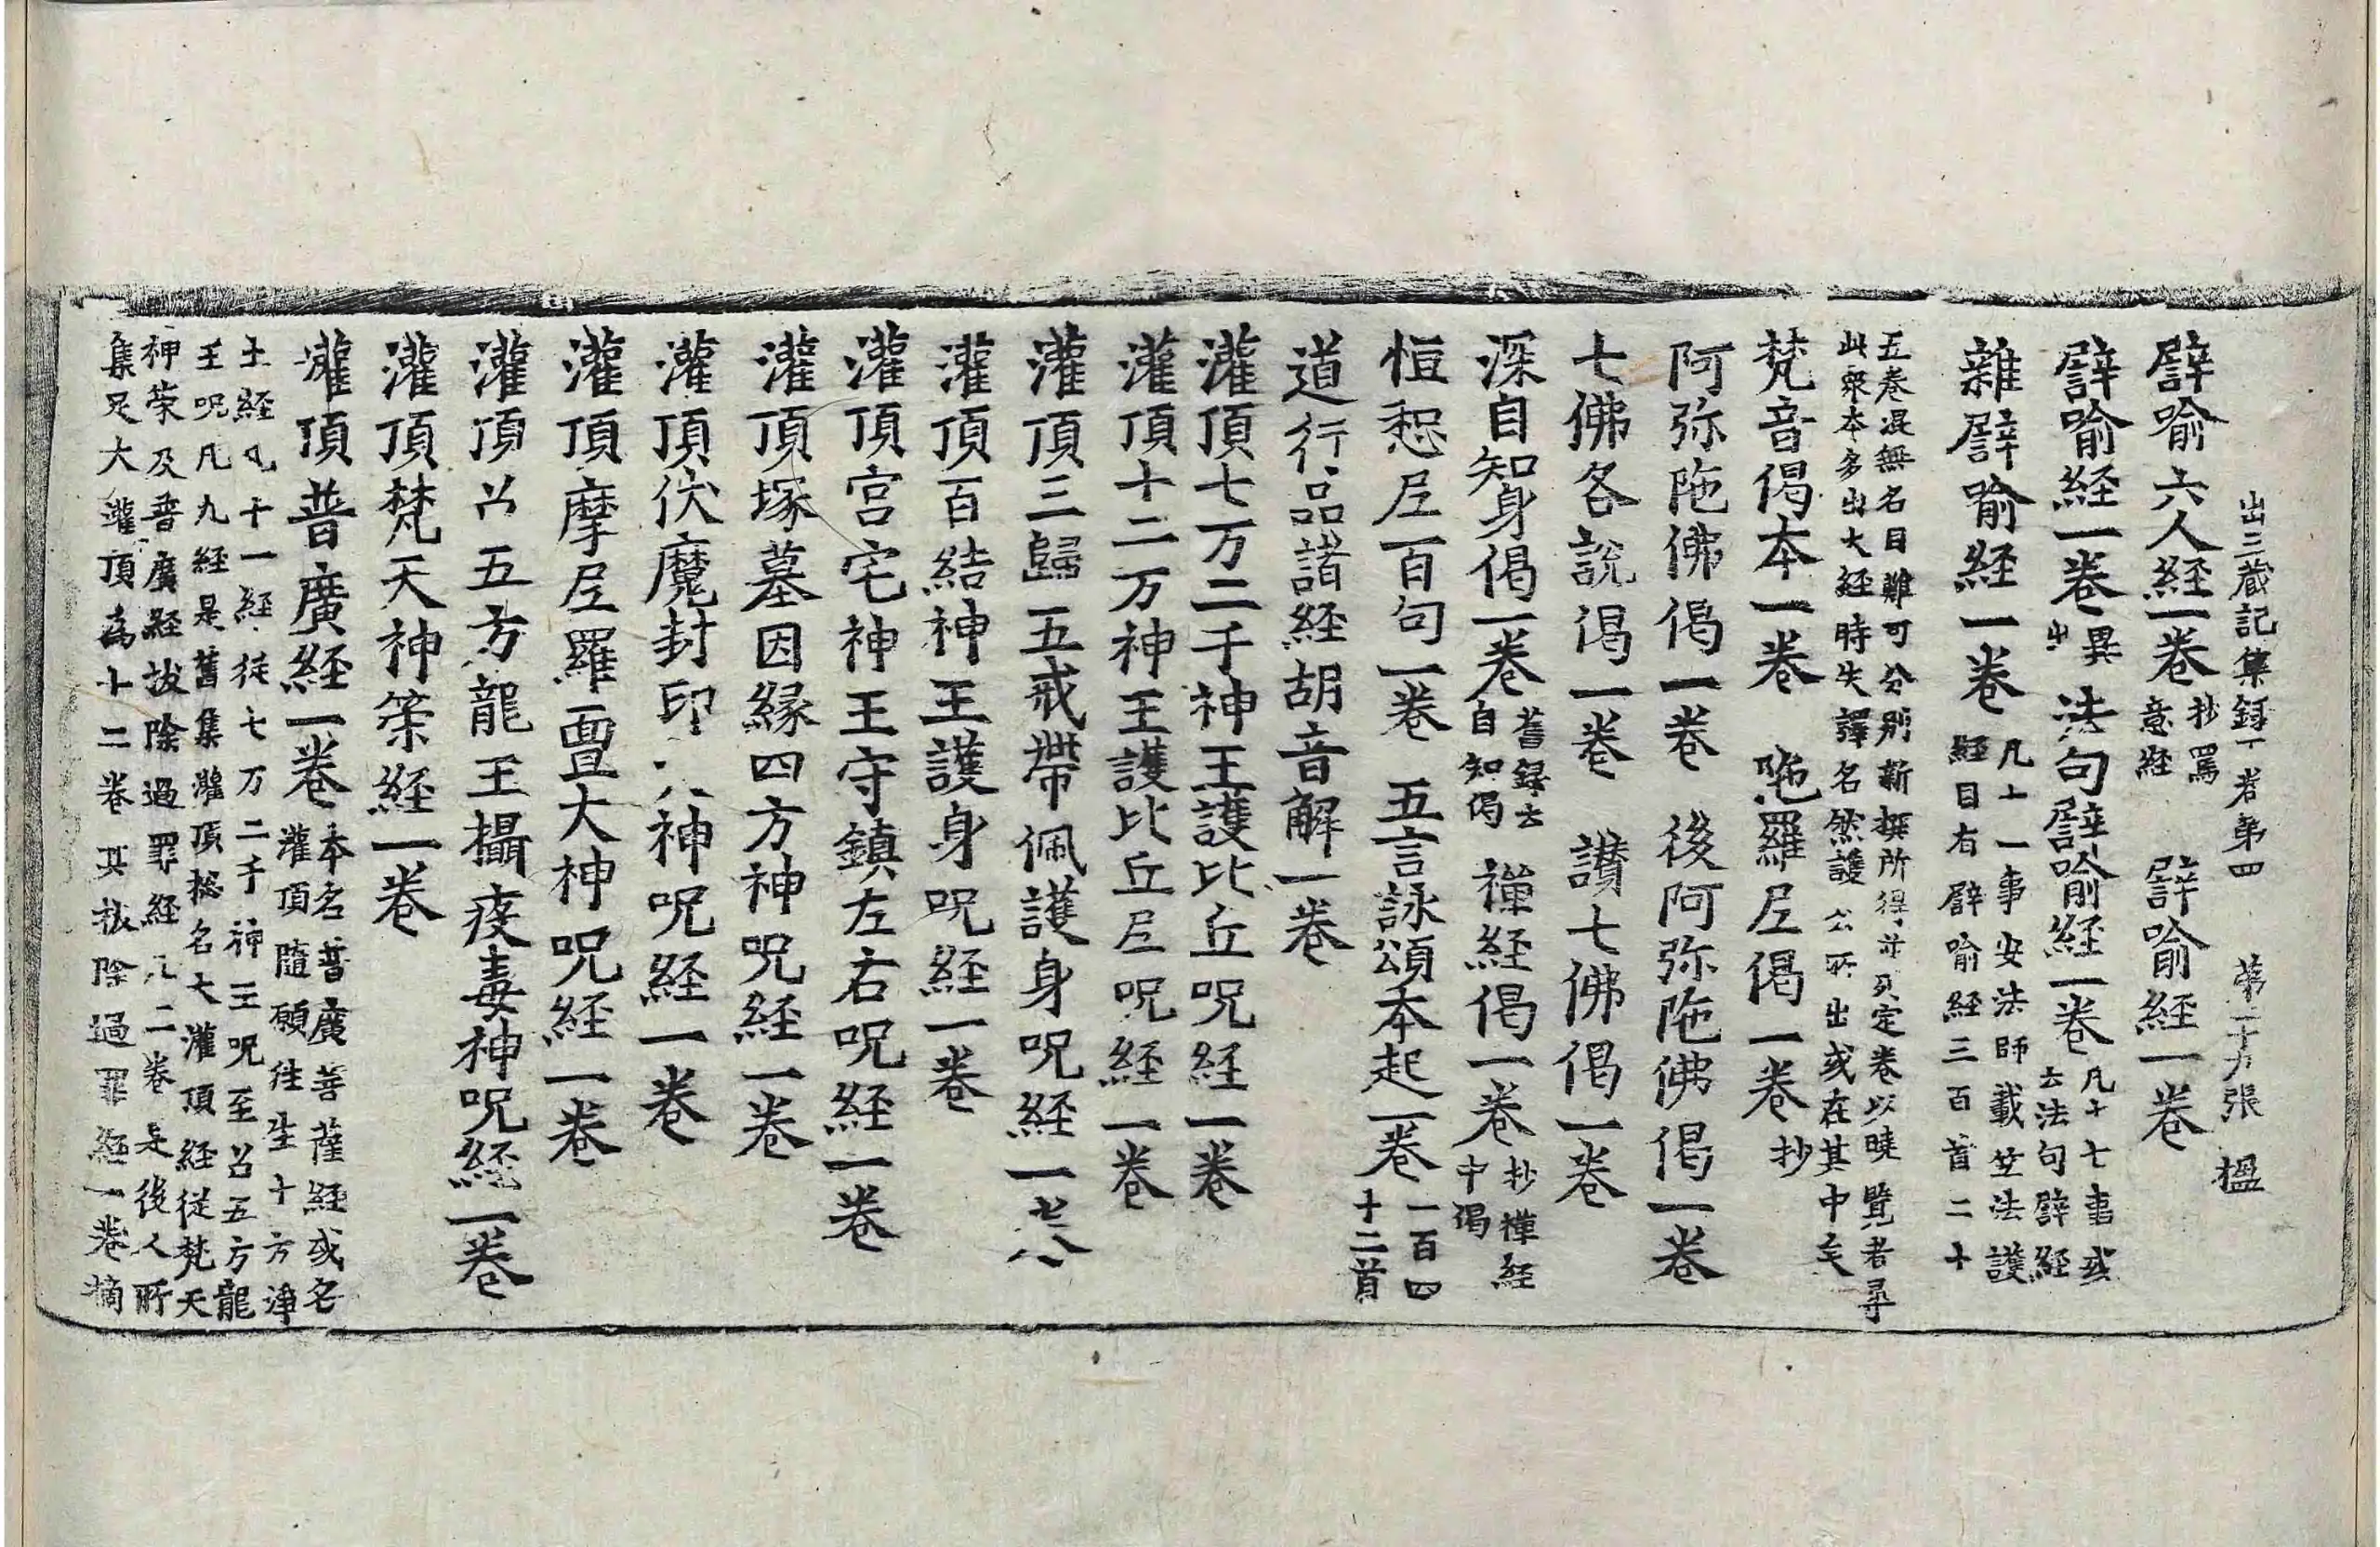 出三藏記集錄下卷第四　第二十九張　榲
譬喻六人經一卷 抄罵意經　譬喻經一卷
譬喻經一卷 異出　法句譬喻經一卷 凡十七事或云法句譬經
雜譬喻經一卷 凡十一事安法師載竺法護經目有譬喻經三百首二十
五卷混無名目難可分別新撰所得並列定卷以曉覽者尋
此衆本多出大經時失譯名然護公所出或在其中矣
梵音偈本一卷　陁羅尼偈一卷 抄
阿弥陁佛偈一卷　後阿弥陁佛偈一卷
七佛各說偈一卷　讚七佛偈一卷
深自知身偈一卷 舊録云自知偈　禪經偈一卷 抄禪經中偈
恒惒尼百句一卷　五言詠頌本起一卷 一百四十二首
道行品諸經胡音解一卷
灌頂七万二千神王護比丘呪經一卷
灌頂十二万神王護比丘尼呪經一卷
灌頂三歸五戒帶佩護身呪經一卷
灌頂百結神王護身呪經一卷
灌頂宮宅神王守鎮左右呪經一卷
灌頂塚墓因緣四方神呪經一卷
灌頂伏魔封印大神呪經一卷
灌頂摩尼羅亶大神呪經一卷
灌頂召五方龍王攝疫毒神呪經一卷
灌頂梵天神策經一卷
灌頂普廣經一卷 本名普廣菩薩經或名灌頂隨願往生十方淨
土經凡十一經從七万二千神王呪至召五方龍
王呪凡九經是舊集灌頂総名大灌頂經從梵天
神策及普廣經拔除過罪經凡二卷是後人所
集足大灌頂為十二卷其拔除過罪經一卷摘